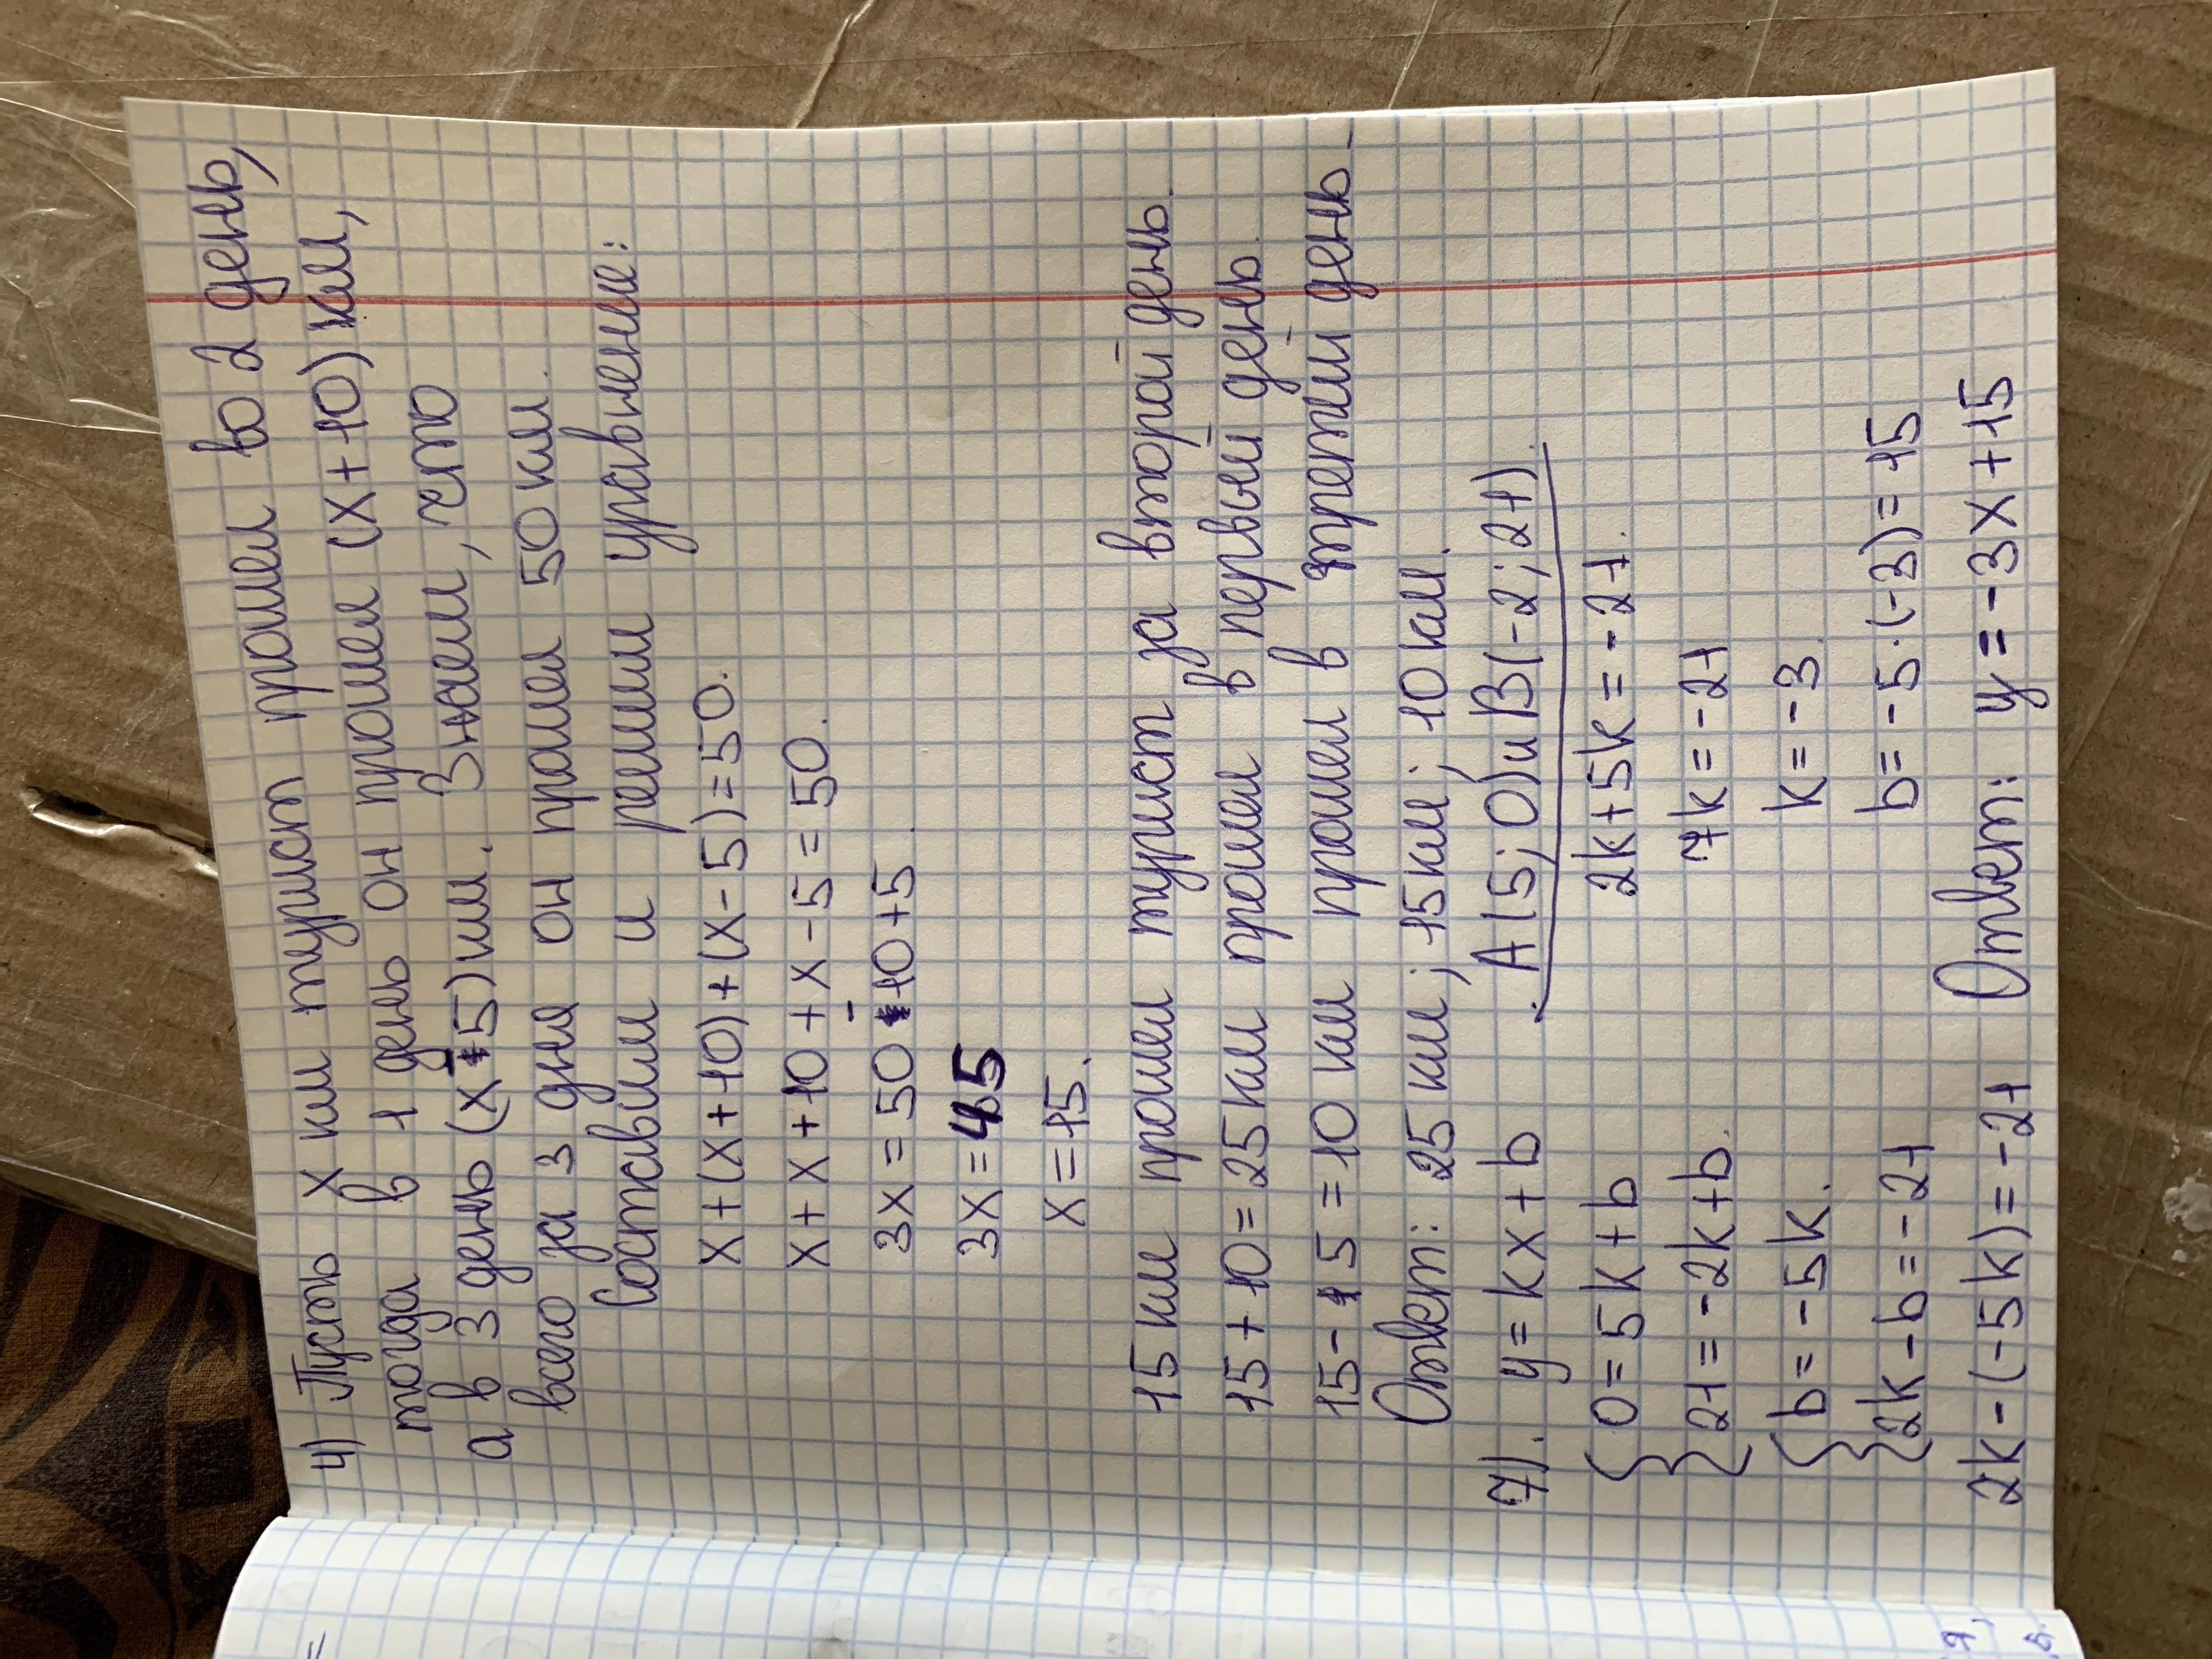 4) Пусть х км турист прошел во 2 день,
тогда в 1 день он прошел (х+10) км,
а в 3 день (х-5) км. Знаем, что
всего за 3 дня он прошел 50 км.
Составим и решим уравнение:
х+(х+10)+(х-5)=50.
х+х+10+х-5=50.
3х=50-10+5.
3х=45
х=15.
15 км прошел турист за второй день.
15+10=25 км прошел в первый день.
15-5=10 км прошел в третий день.
Ответ: 25 км; 15 км; 10 км.
7). y=kx+b . А(5;0) и В(-2;21).
0=5k+b 2k+5k=-21.
21=-2k+b. 7k=-21
b=-5k. k=-3.
2k-b=-21 b=-5·(-3)=15
2k-(-5k)=-21 Ответ: y=-3x+15